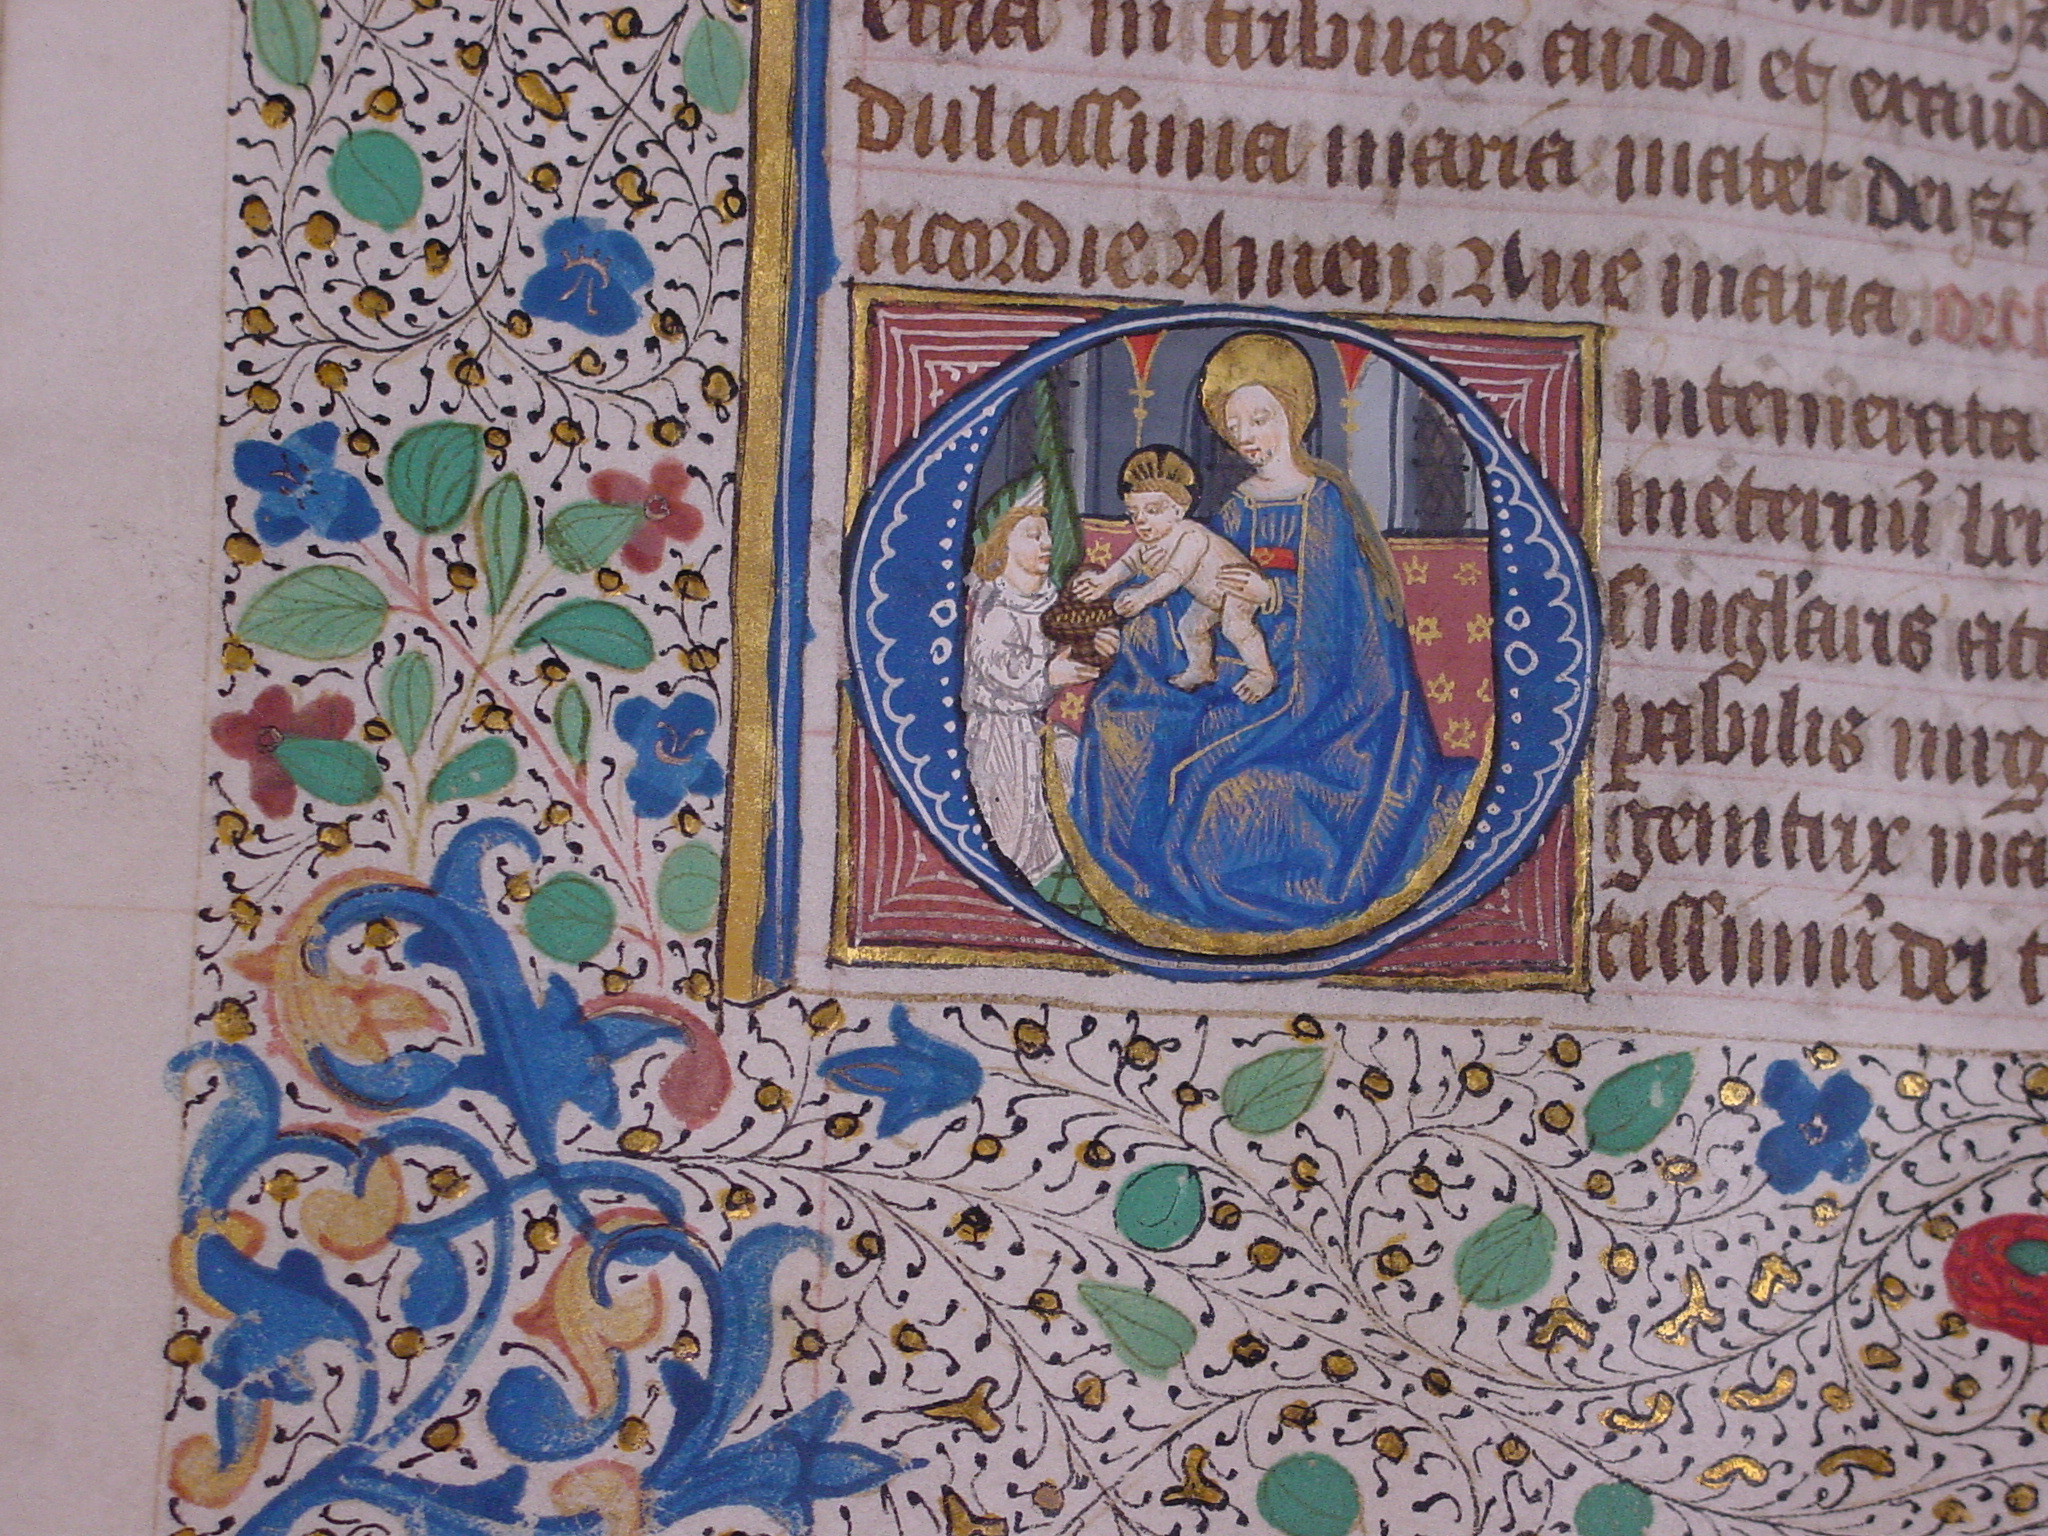 in tribuas. audi et exaud
dulcissima maria mater dei et
ricordie. Amen. Aue maria.
O intemerata
in eternū
singl'aris
pabilis
genitrix ma
tissimū dei t